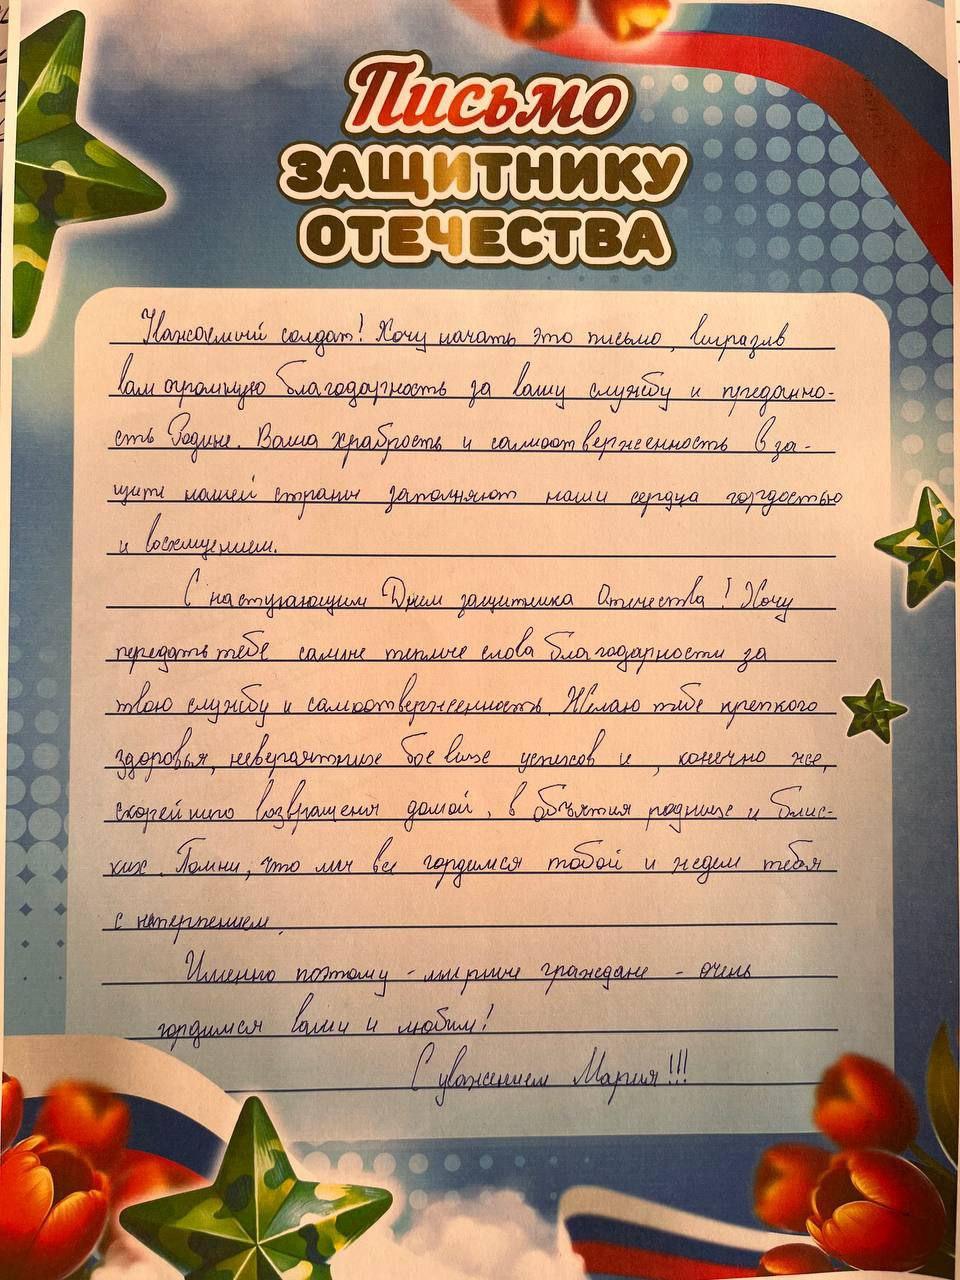 Письмо
ЗАЩИТНИКУ
ОТЕЧЕСТВА
Уважаемый солдат! Хочу начать это письмо, выразив
вам огромную благодарность за вашу службу и преданно-
сть Родине. Ваша храбрость и самоотверженность в за-
щите нашей страны заполняют наши сердца гордостью
и восхищением.
С наступающим Днем защитника Отечества! Хочу
передать тебе самые теплые слова благодарности за
твою службу и самоотверженность. Желаю тебе крепкого
здоровья, невероятных боевых успехов и, конечно же,
скорейшего возвращения домой, в объятия родных и близ-
ких. Помни, что мы все гордимся тобой и ждем тебя
с нетерпением.
Именно поэтому - мирные граждане - очень
гордимся вами и любим!
С уважением Мария!!!